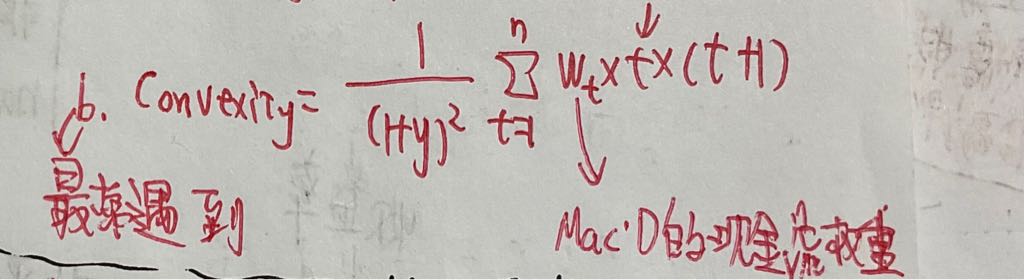 b. Convexity = 1/(1+y)² n∑t=1 Wt × t × (t+1)
最棘遇到
Mac'D的现金流权重